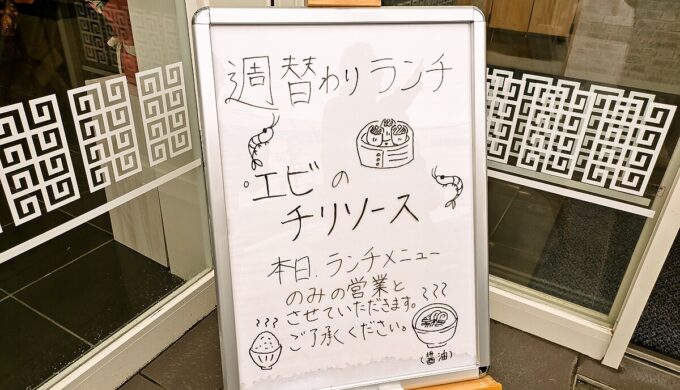 週替わりランチ
エビの
チリソース
本日、ランチメニュー
のみの営業と
させていただきます。
ご了承ください。
(醤油)